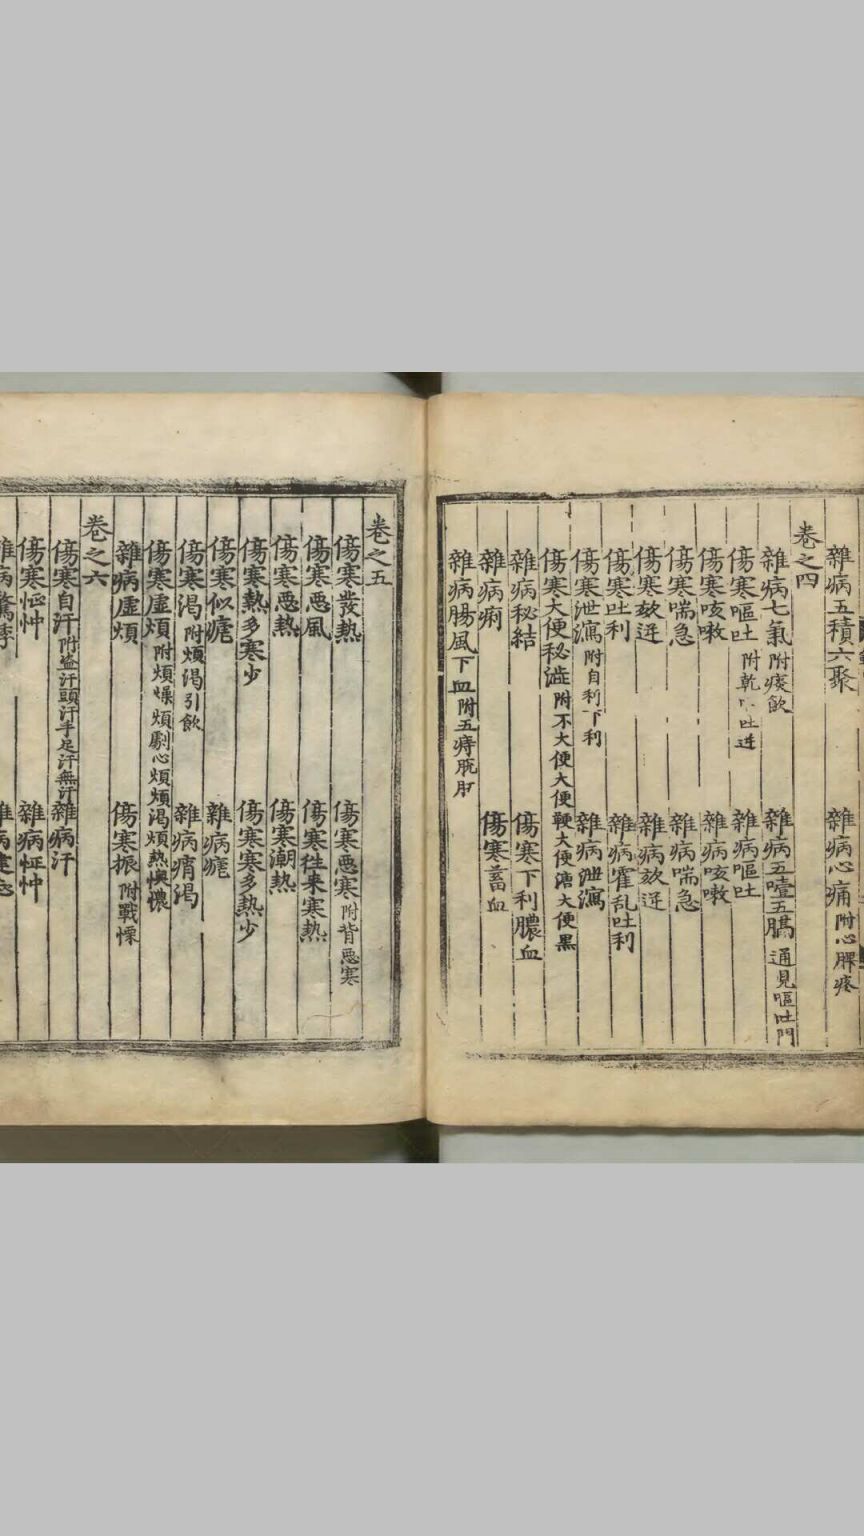 雜病五積六聚 雜病心痛附心脾疼
卷之四
雜病七氣附痰飲 雜病五噎五膈通見嘔吐門
傷寒嘔吐附乾 吐逆 雜病嘔吐
傷寒咳嗽 雜病咳嗽
傷寒喘急 雜病喘急
傷寒欬逆 雜病欬逆
傷寒吐利 雜病霍乱吐利
傷寒泄瀉附自利下利 雜病泄瀉
傷寒大便秘澁附不大便大便鞕大便溏大便黒
雜病秘結 傷寒下利膿血
雜病痢 傷寒蓄血
雜病腸風下血附五痔脫肛
卷之五
傷寒發熱 傷寒惡寒附背惡寒
傷寒惡風 傷寒徃来寒熱
傷寒惡熱 傷寒潮熱
傷寒熱多寒少 傷寒寒多熱少
傷寒似瘧 雜病瘧
傷寒渴附煩渴引飲 雜病痟渴
傷寒虛煩附煩燥煩劇心煩煩渴煩熱懊憹
雜病虛煩 傷寒振附戰慄
卷之六
傷寒自汗附盗汗頭汗手足汗無汗 雜病汗
傷寒怔忡 雜病怔忡
雜病驚悸 雜病健忘